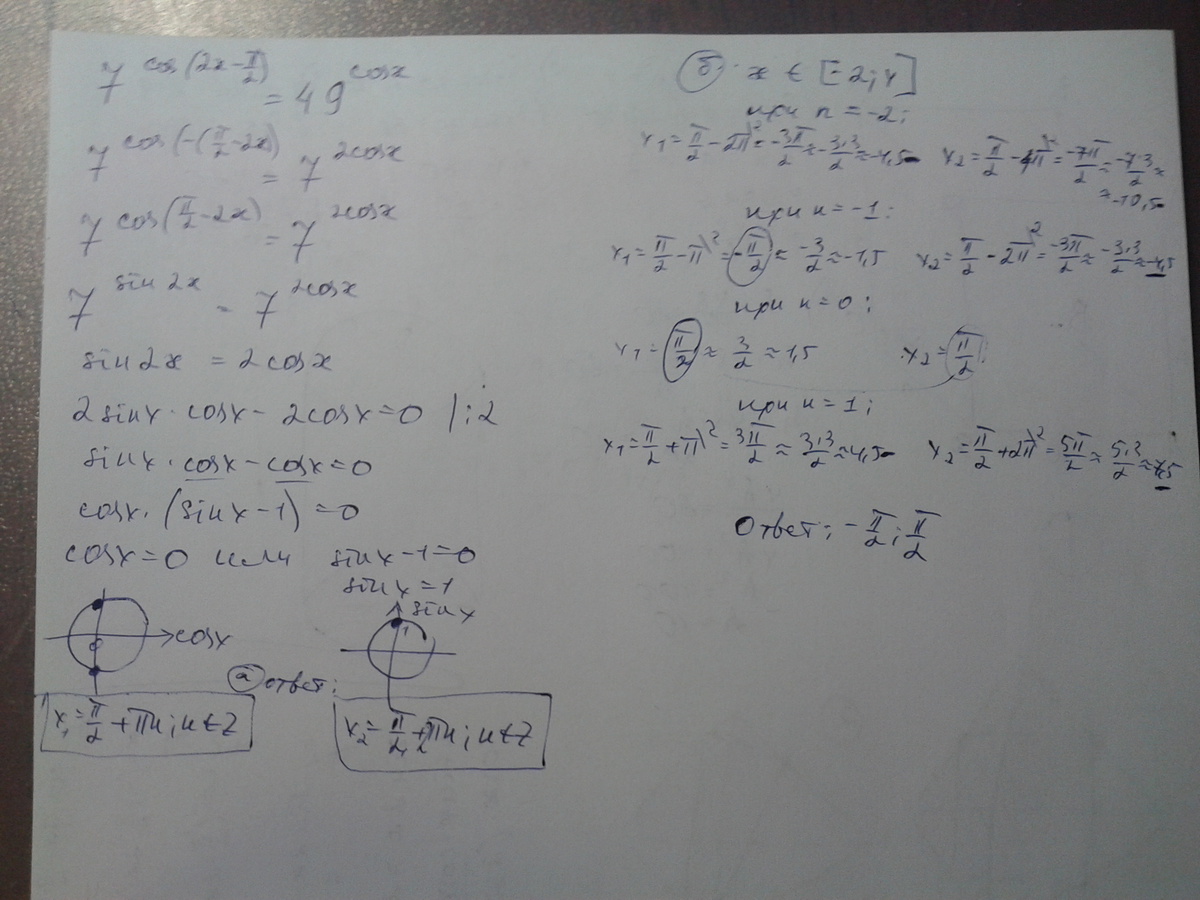 7^cos(2x-π/2) = 49^cosx
7^cos(-(π/2-2x)) = 7^2cosx
7^cos(π/2-2x) = 7^2cosx
7^sin2x = 7^2cosx
sin2x = 2cosx
2sinx·cosx-2cosx=0 |:2
sinx·cosx-cosx=0
cosx·(sinx-1)=0
cosx=0 или sinx-1=0
sinx=1
sinx
cosx
0
1
а ответ:
x₁=π/2+πn; n∈Z
x₂=π/2+2πn; n∈Z
б. x∈[-2;4]
при n=-2;
x₁=π/2-2π\²=-3π/2≈-3·3/2≈-4,5
x₂=π/2-4π\²=-7π/2≈-7·3/2≈
≈-10,5
при n=-1:
x₁=π/2-π\²=-π/2≈-3/2≈-1,5
x₂=π/2-2π\²=-3π/2≈-3·3/2≈-4,5
при n=0;
x₁=π/2≈3/2≈1,5
x₂=π/2;
при n=1;
x₁=π/2+π\²=3π/2≈3·3/2≈4,5
x₂=π/2+2π\²=5π/2≈5·3/2≈7,5
Ответ: -π/2; π/2